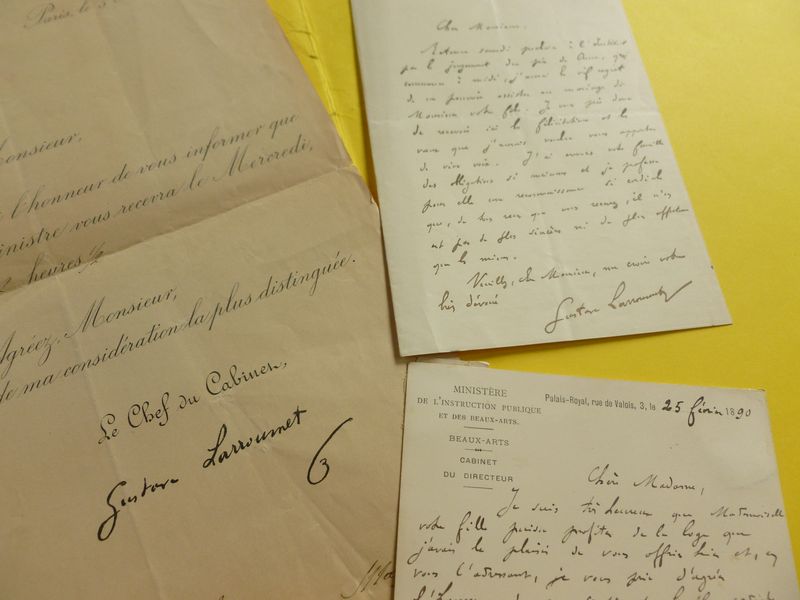 Paris, le 3
Monsieur,
l'honneur de vous informer que
Ministre vous recevra le Mercredi,
heures 1/2
Agréez, Monsieur,
de ma considération la plus distinguée.
Le Chef du Cabinet,
Gustave Larroumet
Cher Monsieur,
à l'Institut
par le jugement du prix de Rome, qui
commence à midi, j'aurai le vif regret
de ne pouvoir assister au mariage de
Monsieur votre fils. Je vous prie donc
de recevoir ici les félicitations et les
vœux que j'aurais voulu vous apporter
de vive voix. J'ai envers votre famille
des obligations si et je professe
pour elle une reconnaissance si cordiale
que, de tous ceux que vous recevrez, il n'en
est pas de plus sincères ni de plus affectueux
que les miens.
Veuillez, cher Monsieur, me croire votre
très dévoué
Gustave Larroumet
MINISTÈRE
DE L'INSTRUCTION PUBLIQUE
ET DES BEAUX-ARTS.
BEAUX-ARTS
CABINET
DU DIRECTEUR
Palais-Royal, rue de Valois, 3, le 25 février 1890
Chère Madame,
Je suis très heureux que Mademoiselle
votre fille puisse profiter de la loge que
j'avais le plaisir de vous offrir hier et, en
vous l'adressant, je vous prie d'agréer